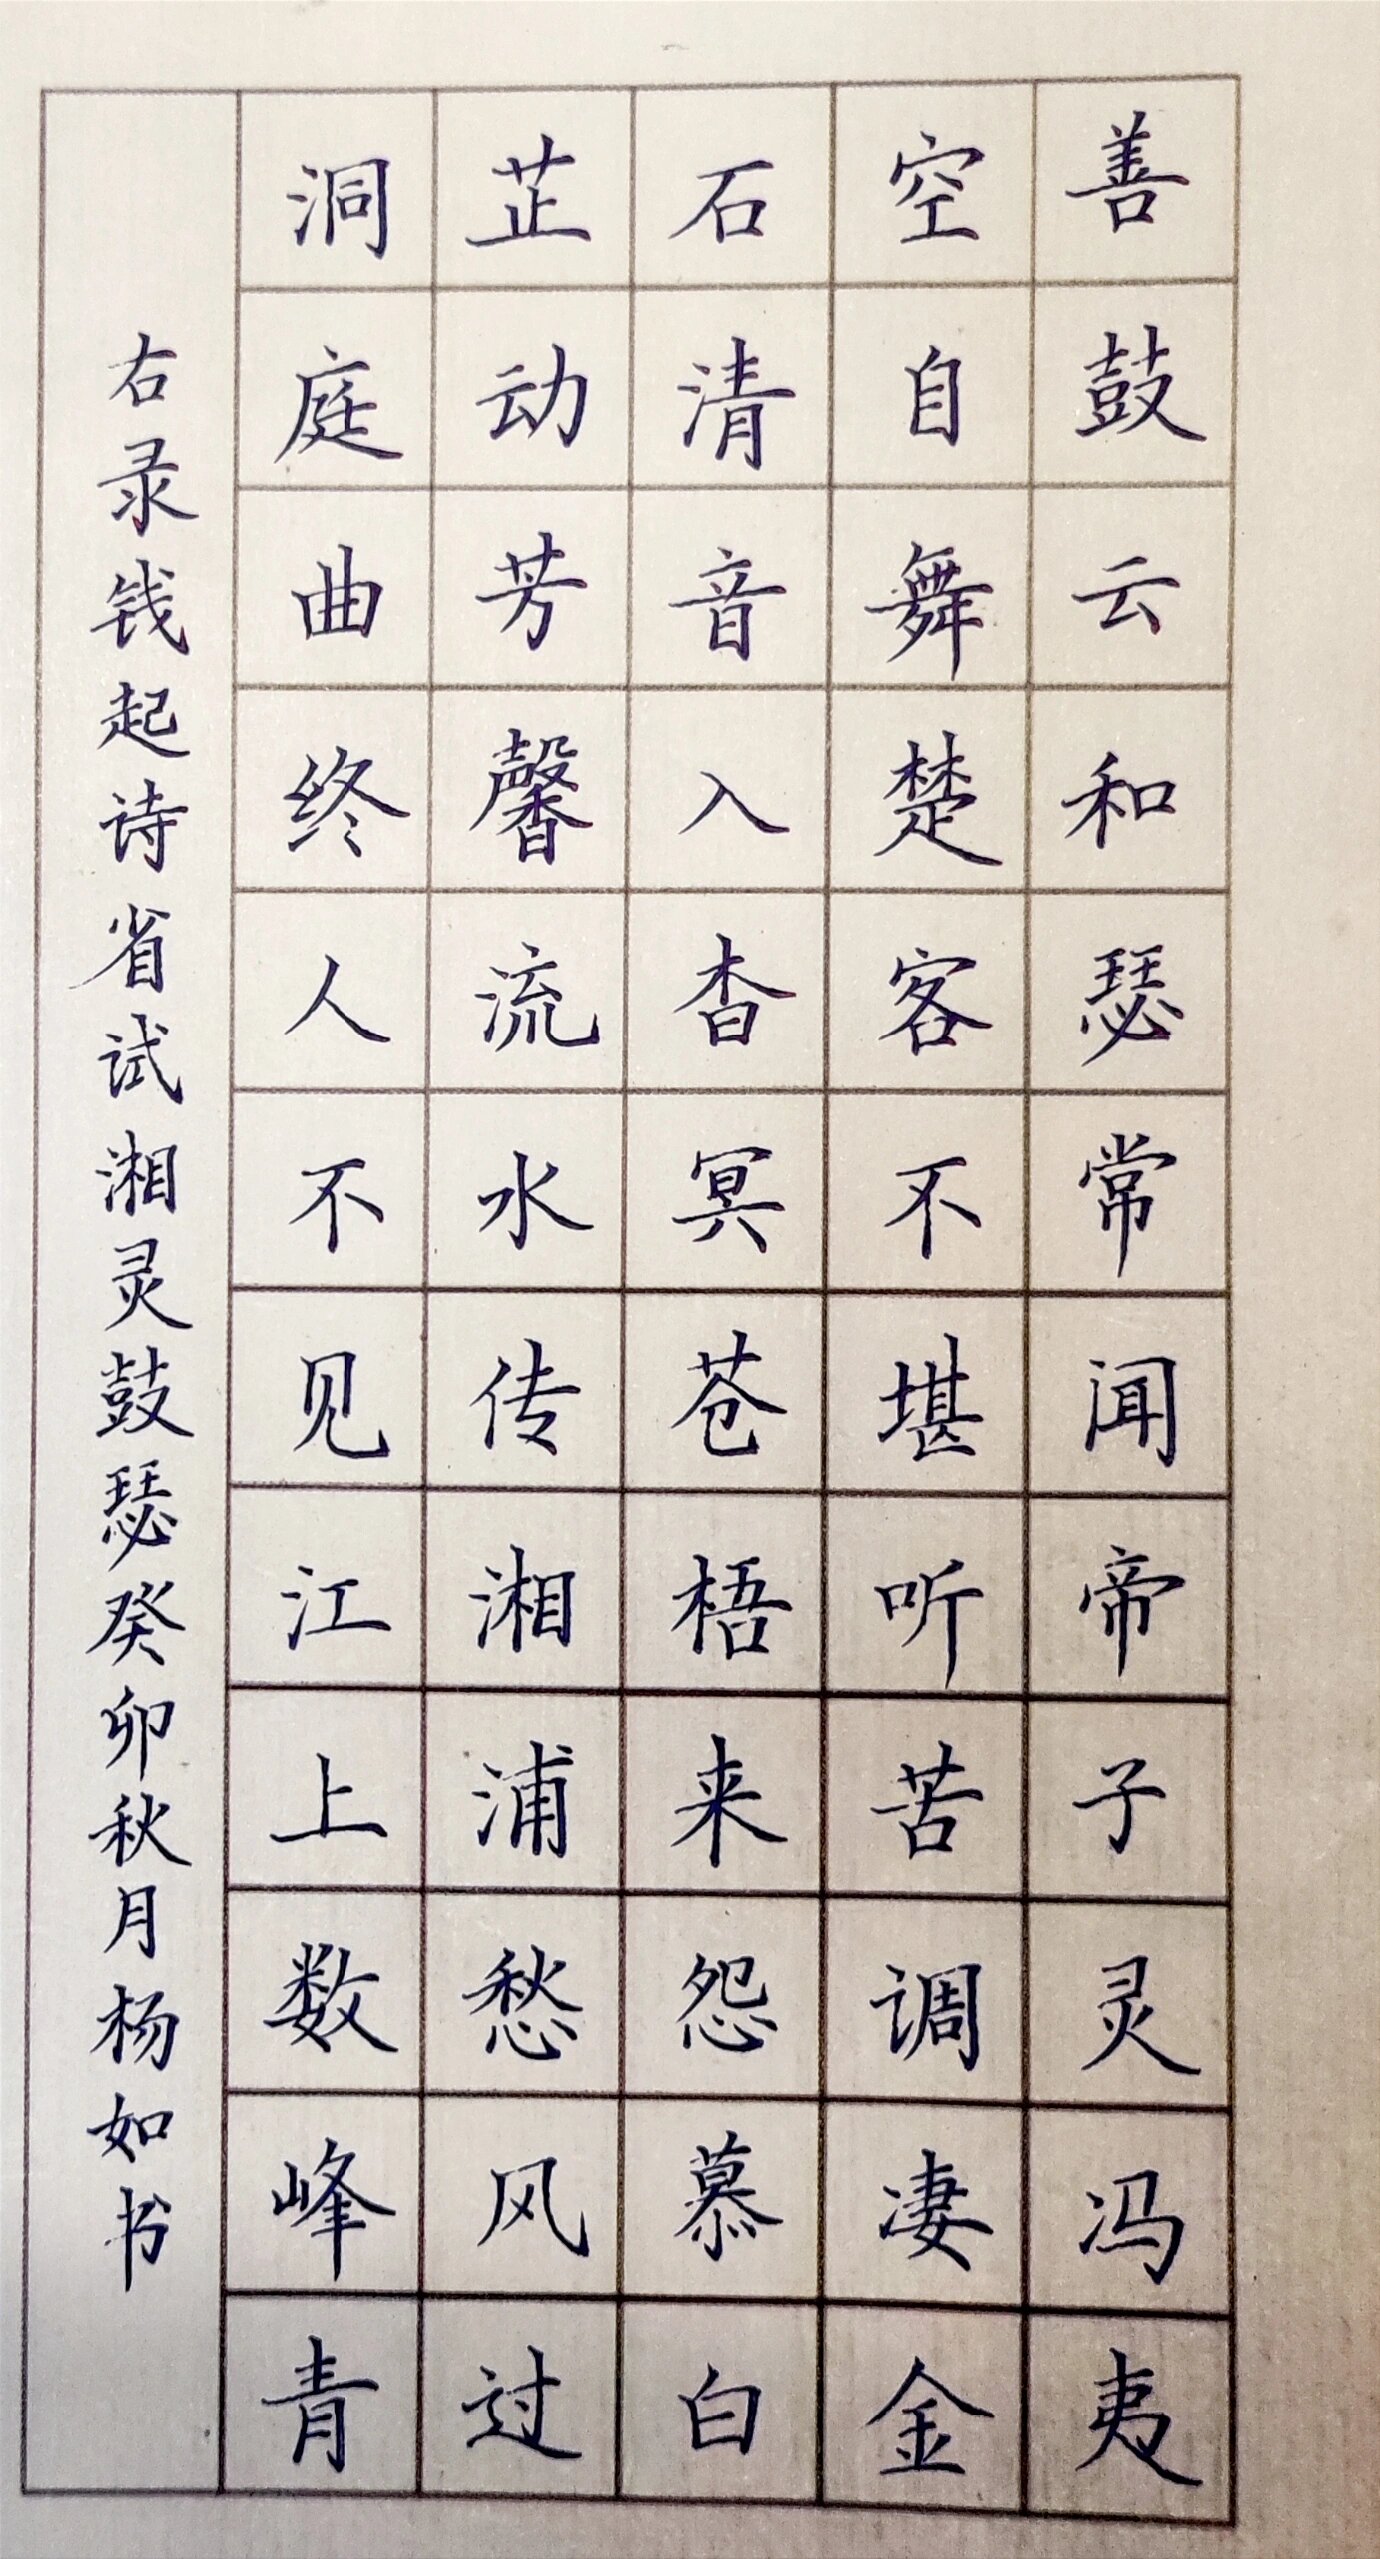 善鼓云和瑟常闻帝子灵冯夷
空自舞楚客不堪听苦调凄金
石清音入杳冥苍梧来怨慕白
芷动芳馨流水传湘浦愁风过
洞庭曲终人不见江上数峰青
右录钱起诗省试湘灵鼓瑟癸卯秋月杨如书